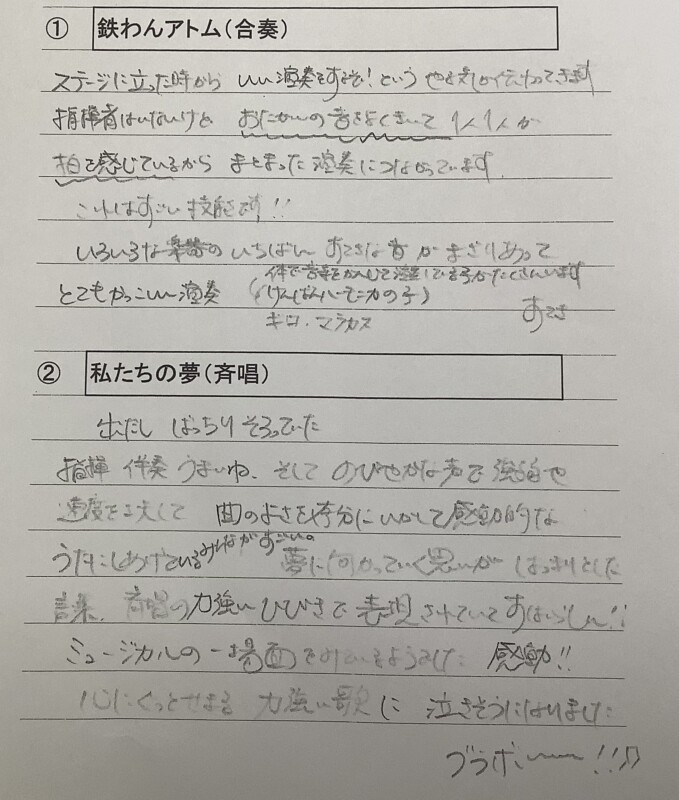 ① 鉄わんアトム(合奏)
ステージに立った時から いい演奏をするぞ!という やる気が伝わってきます
指揮者はいないけど おたがいの音をよくきいて 1人1人が
拍を感じているから まとまった演奏につながっています。
これはすごい技能です!!
いろいろな楽器の いちばん すてきな音が まざりあって
体で音楽をかんじて演奏している子がたくさんいます
とてもかっこいい演奏 (けんばんハーモニカの子)
ギロ・マラカス すてき
② 私たちの夢(斉唱)
出だし ばっちり そろっていた
指揮 伴奏 うまいね、そして のびやかな声で 強弱や
速度を工夫して 曲のよさを存分にいかして感動的な
うたにしあげているみんながすごい。 夢に向かっていく思いが はっきりとした
言葉、斉唱の力強いひびきで 表現されていて すばらしい!!
ミュージカルの一場面をみているようでした 感動!!
心にぐっとせまる 力強い歌に 泣きそうになりました
ブラボーー!!♫